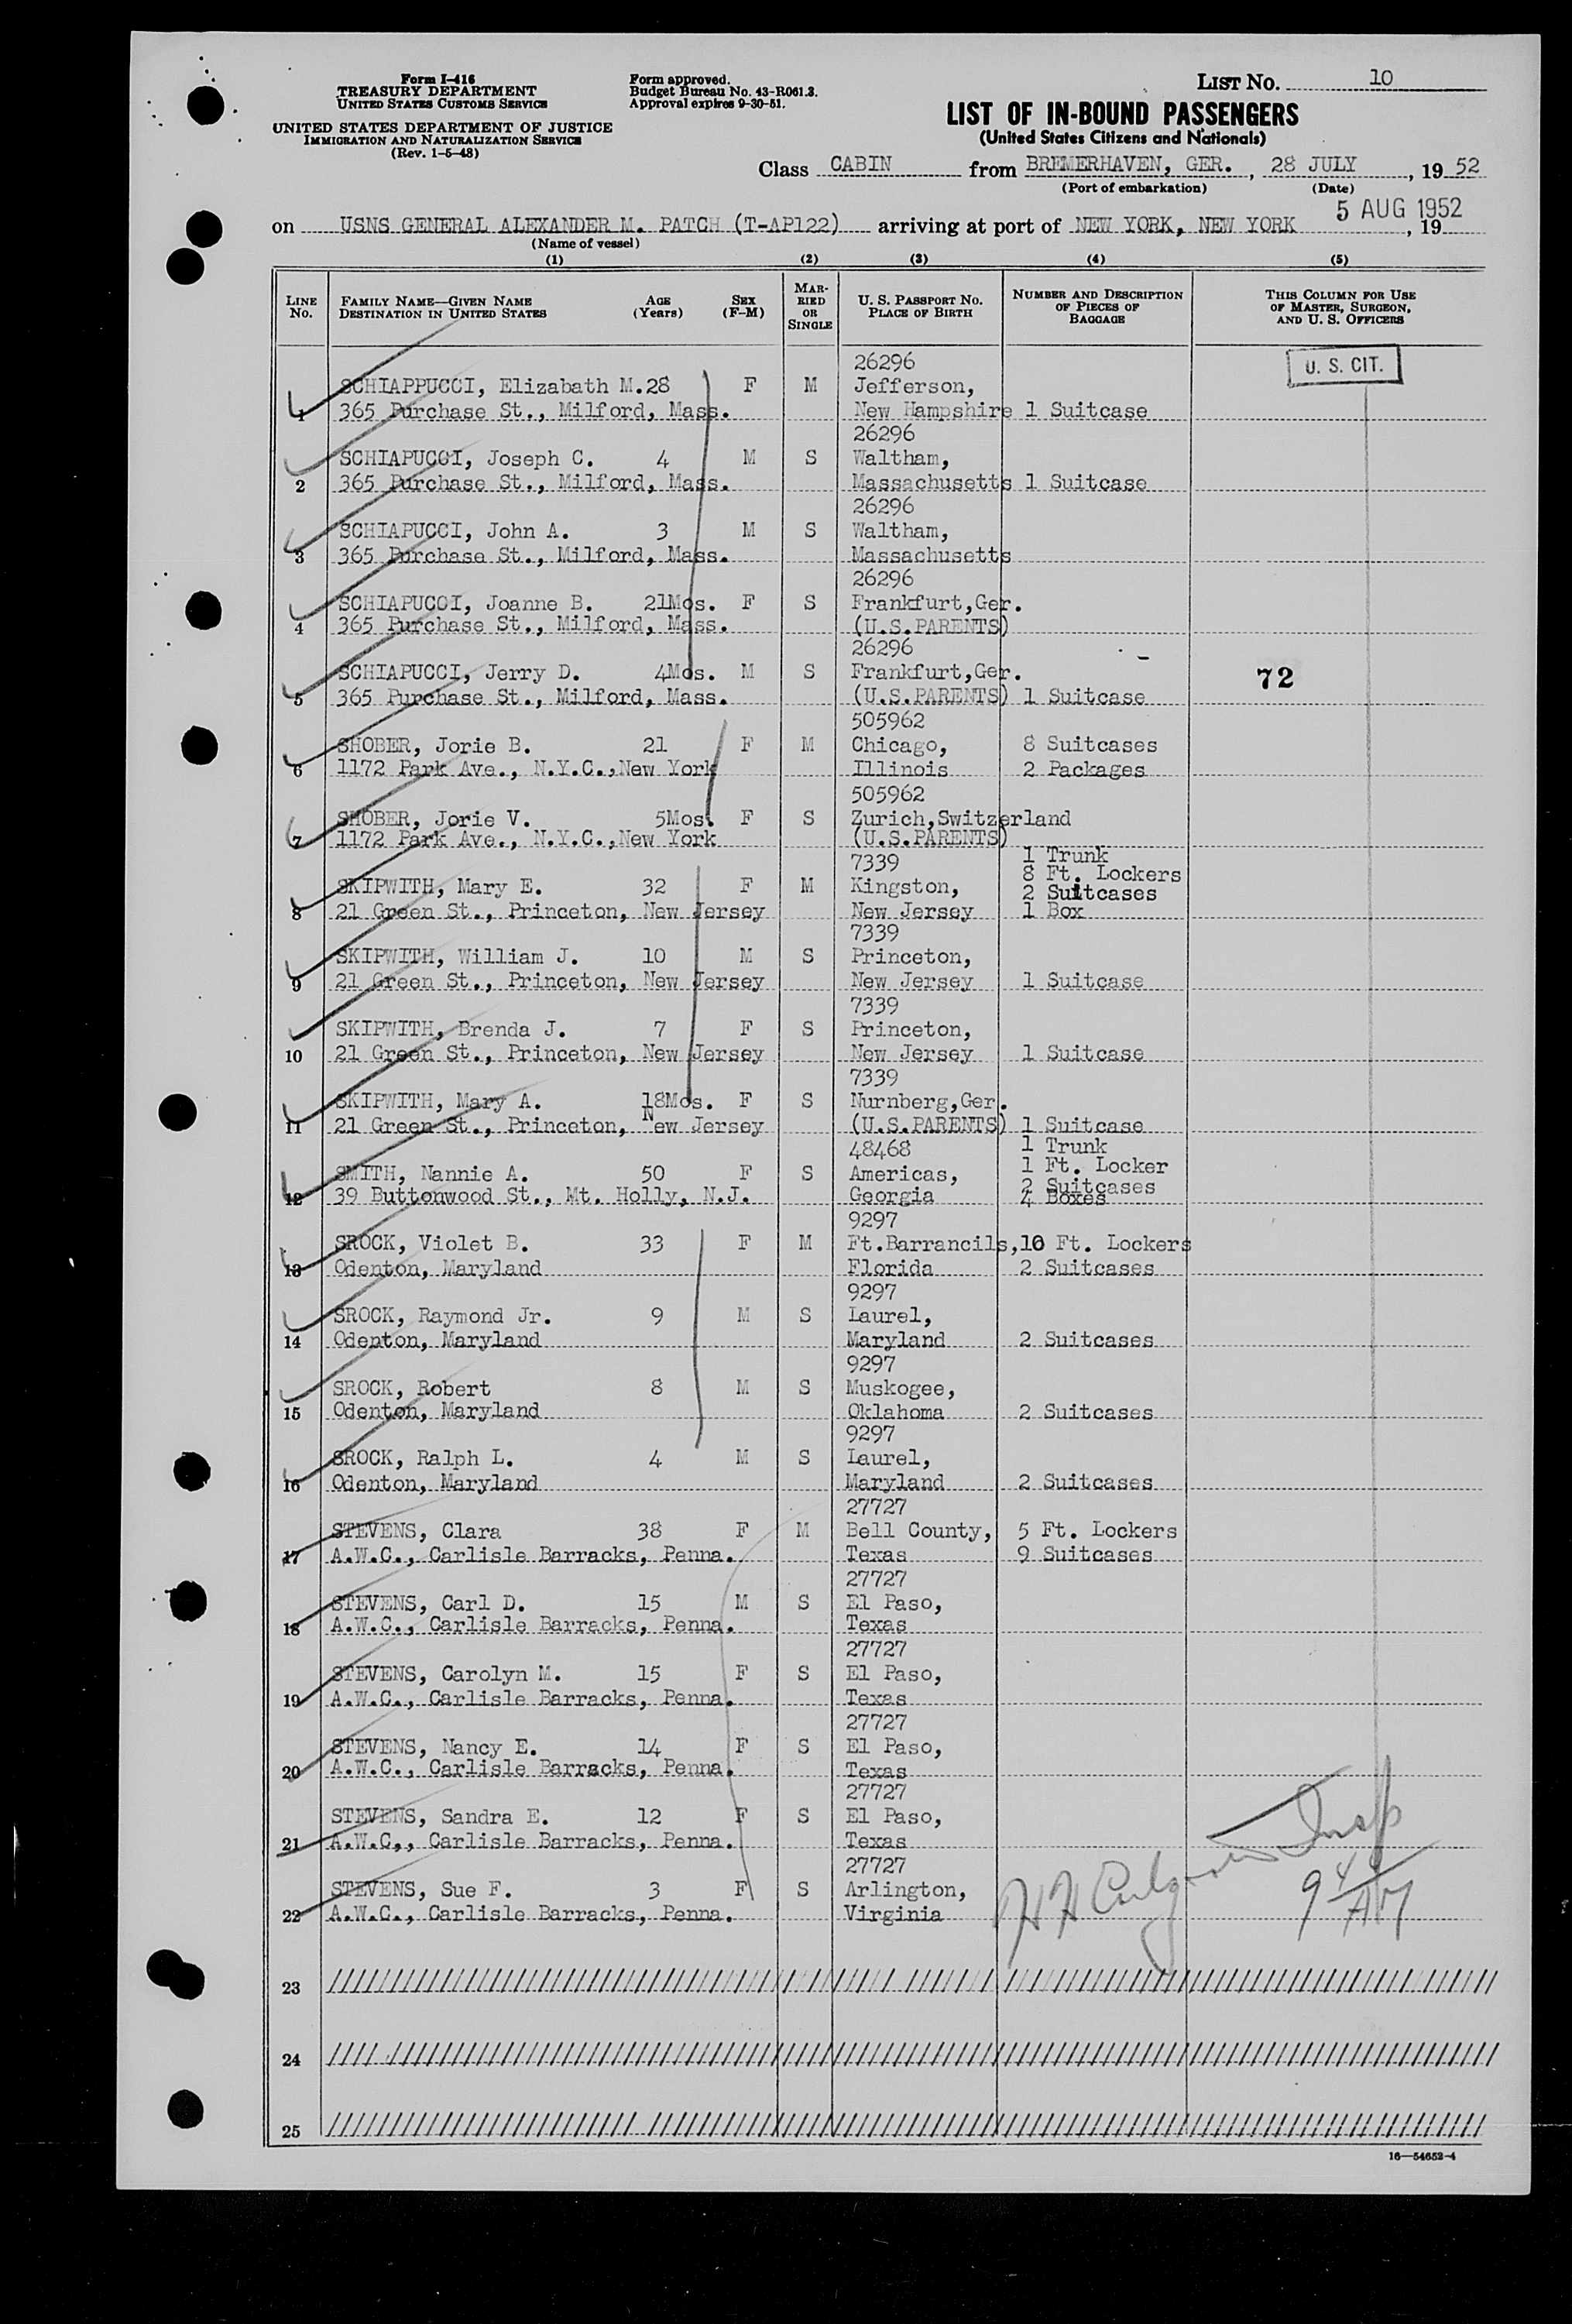 Form I-416
TREASURY DEPARTMENT
UNITED STATES CUSTOMS SERVICE
UNITED STATES DEPARTMENT OF JUSTICE
IMMIGRATION AND NATURALIZATION SERVICE
(Rev. 1-5-48)
Form approved.
Budget Bureau No. 43-R061.3.
Approval expires 9-30-51.
LIST No. 10
LIST OF IN-BOUND PASSENGERS
(United States Citizens and Nationals)
Class CABIN from BREMERHAVEN, GER. , 28 JULY , 19 52
(Port of embarkation) (Date)
on USNS GENERAL ALEXANDER M. PATCH (T-AP122) arriving at port of NEW YORK, NEW YORK 5 AUG 1952 , 19
(Name of vessel)
(1) (2) (3) (4) (5)
LINE No. FAMILY NAME—GIVEN NAME DESTINATION IN UNITED STATES AGE (Years) SEX (F-M) MARRIED OR SINGLE U. S. PASSPORT NO. PLACE OF BIRTH NUMBER AND DESCRIPTION OF PIECES OF BAGGAGE THIS COLUMN FOR USE OF MASTER, SURGEON, AND U. S. OFFICERS
26296 U. S. CIT.
SCHIAPPUCCI, Elizabath M. 28 F M Jefferson,
1 365 Purchase St., Milford, Mass. New Hampshire 1 Suitcase
26296
SCHIAPUCCI, Joseph C. 4 M S Waltham,
2 365 Purchase St., Milford, Mass. Massachusetts 1 Suitcase
26296
SCHIAPUCCI, John A. 3 M S Waltham,
3 365 Purchase St., Milford, Mass. Massachusetts
26296
SCHIAPUCCI, Joanne B. 21Mos. F S Frankfurt,Ger.
4 365 Purchase St., Milford, Mass. (U.S.PARENTS)
26296
SCHIAPUCCI, Jerry D. 4Mos. M S Frankfurt,Ger. 72
5 365 Purchase St., Milford, Mass. (U.S.PARENTS) 1 Suitcase
505962
SHOBER, Jorie B. 21 F M Chicago, 8 Suitcases
6 1172 Park Ave., N.Y.C.,New York Illinois 2 Packages
505962
SHOBER, Jorie V. 5Mos. F S Zurich,Switzerland
7 1172 Park Ave., N.Y.C.,New York (U.S.PARENTS)
7339 1 Trunk
8 Ft. Lockers
SKIPWITH, Mary E. 32 F M Kingston, 2 Suitcases
8 21 Green St., Princeton, New Jersey New Jersey 1 Box
7339
SKIPWITH, William J. 10 M S Princeton,
9 21 Green St., Princeton, New Jersey New Jersey 1 Suitcase
7339
SKIPWITH, Brenda J. 7 F S Princeton,
10 21 Green St., Princeton, New Jersey New Jersey 1 Suitcase
7339
SKIPWITH, Mary A. 18Mos. F S Nurnberg,Ger.
11 21 Green St., Princeton, New Jersey (U.S.PARENTS) 1 Suitcase
48468 1 Trunk
1 Ft. Locker
SMITH, Nannie A. 50 F S Americas, 2 Suitcases
12 39 Buttonwood St., Mt. Holly, N.J. Georgia 4 Boxes
9297
SROCK, Violet B. 33 F M Ft.Barrancils, 10 Ft. Lockers
13 Odenton, Maryland Florida 2 Suitcases
9297
SROCK, Raymond Jr. 9 M S Laurel,
14 Odenton, Maryland Maryland 2 Suitcases
9297
SROCK, Robert 8 M S Muskogee,
15 Odenton, Maryland Oklahoma 2 Suitcases
9297
SROCK, Ralph L. 4 M S Laurel,
16 Odenton, Maryland Maryland 2 Suitcases
27727
STEVENS, Clara 38 F M Bell County, 5 Ft. Lockers
17 A.W.C., Carlisle Barracks, Penna. Texas 9 Suitcases
27727
STEVENS, Carl D. 15 M S El Paso,
18 A.W.C., Carlisle Barracks, Penna. Texas
27727
STEVENS, Carolyn M. 15 F S El Paso,
19 A.W.C., Carlisle Barracks, Penna. Texas
27727
STEVENS, Nancy E. 14 F S El Paso,
20 A.W.C., Carlisle Barracks, Penna. Texas
27727
STEVENS, Sandra E. 12 F S El Paso,
21 A.W.C,, Carlisle Barracks, Penna. Texas
27727 Insp
STEVENS, Sue F. 3 F S Arlington,
22 A.W.C., Carlisle Barracks, Penna. Virginia
23
24
25
16—54652-4